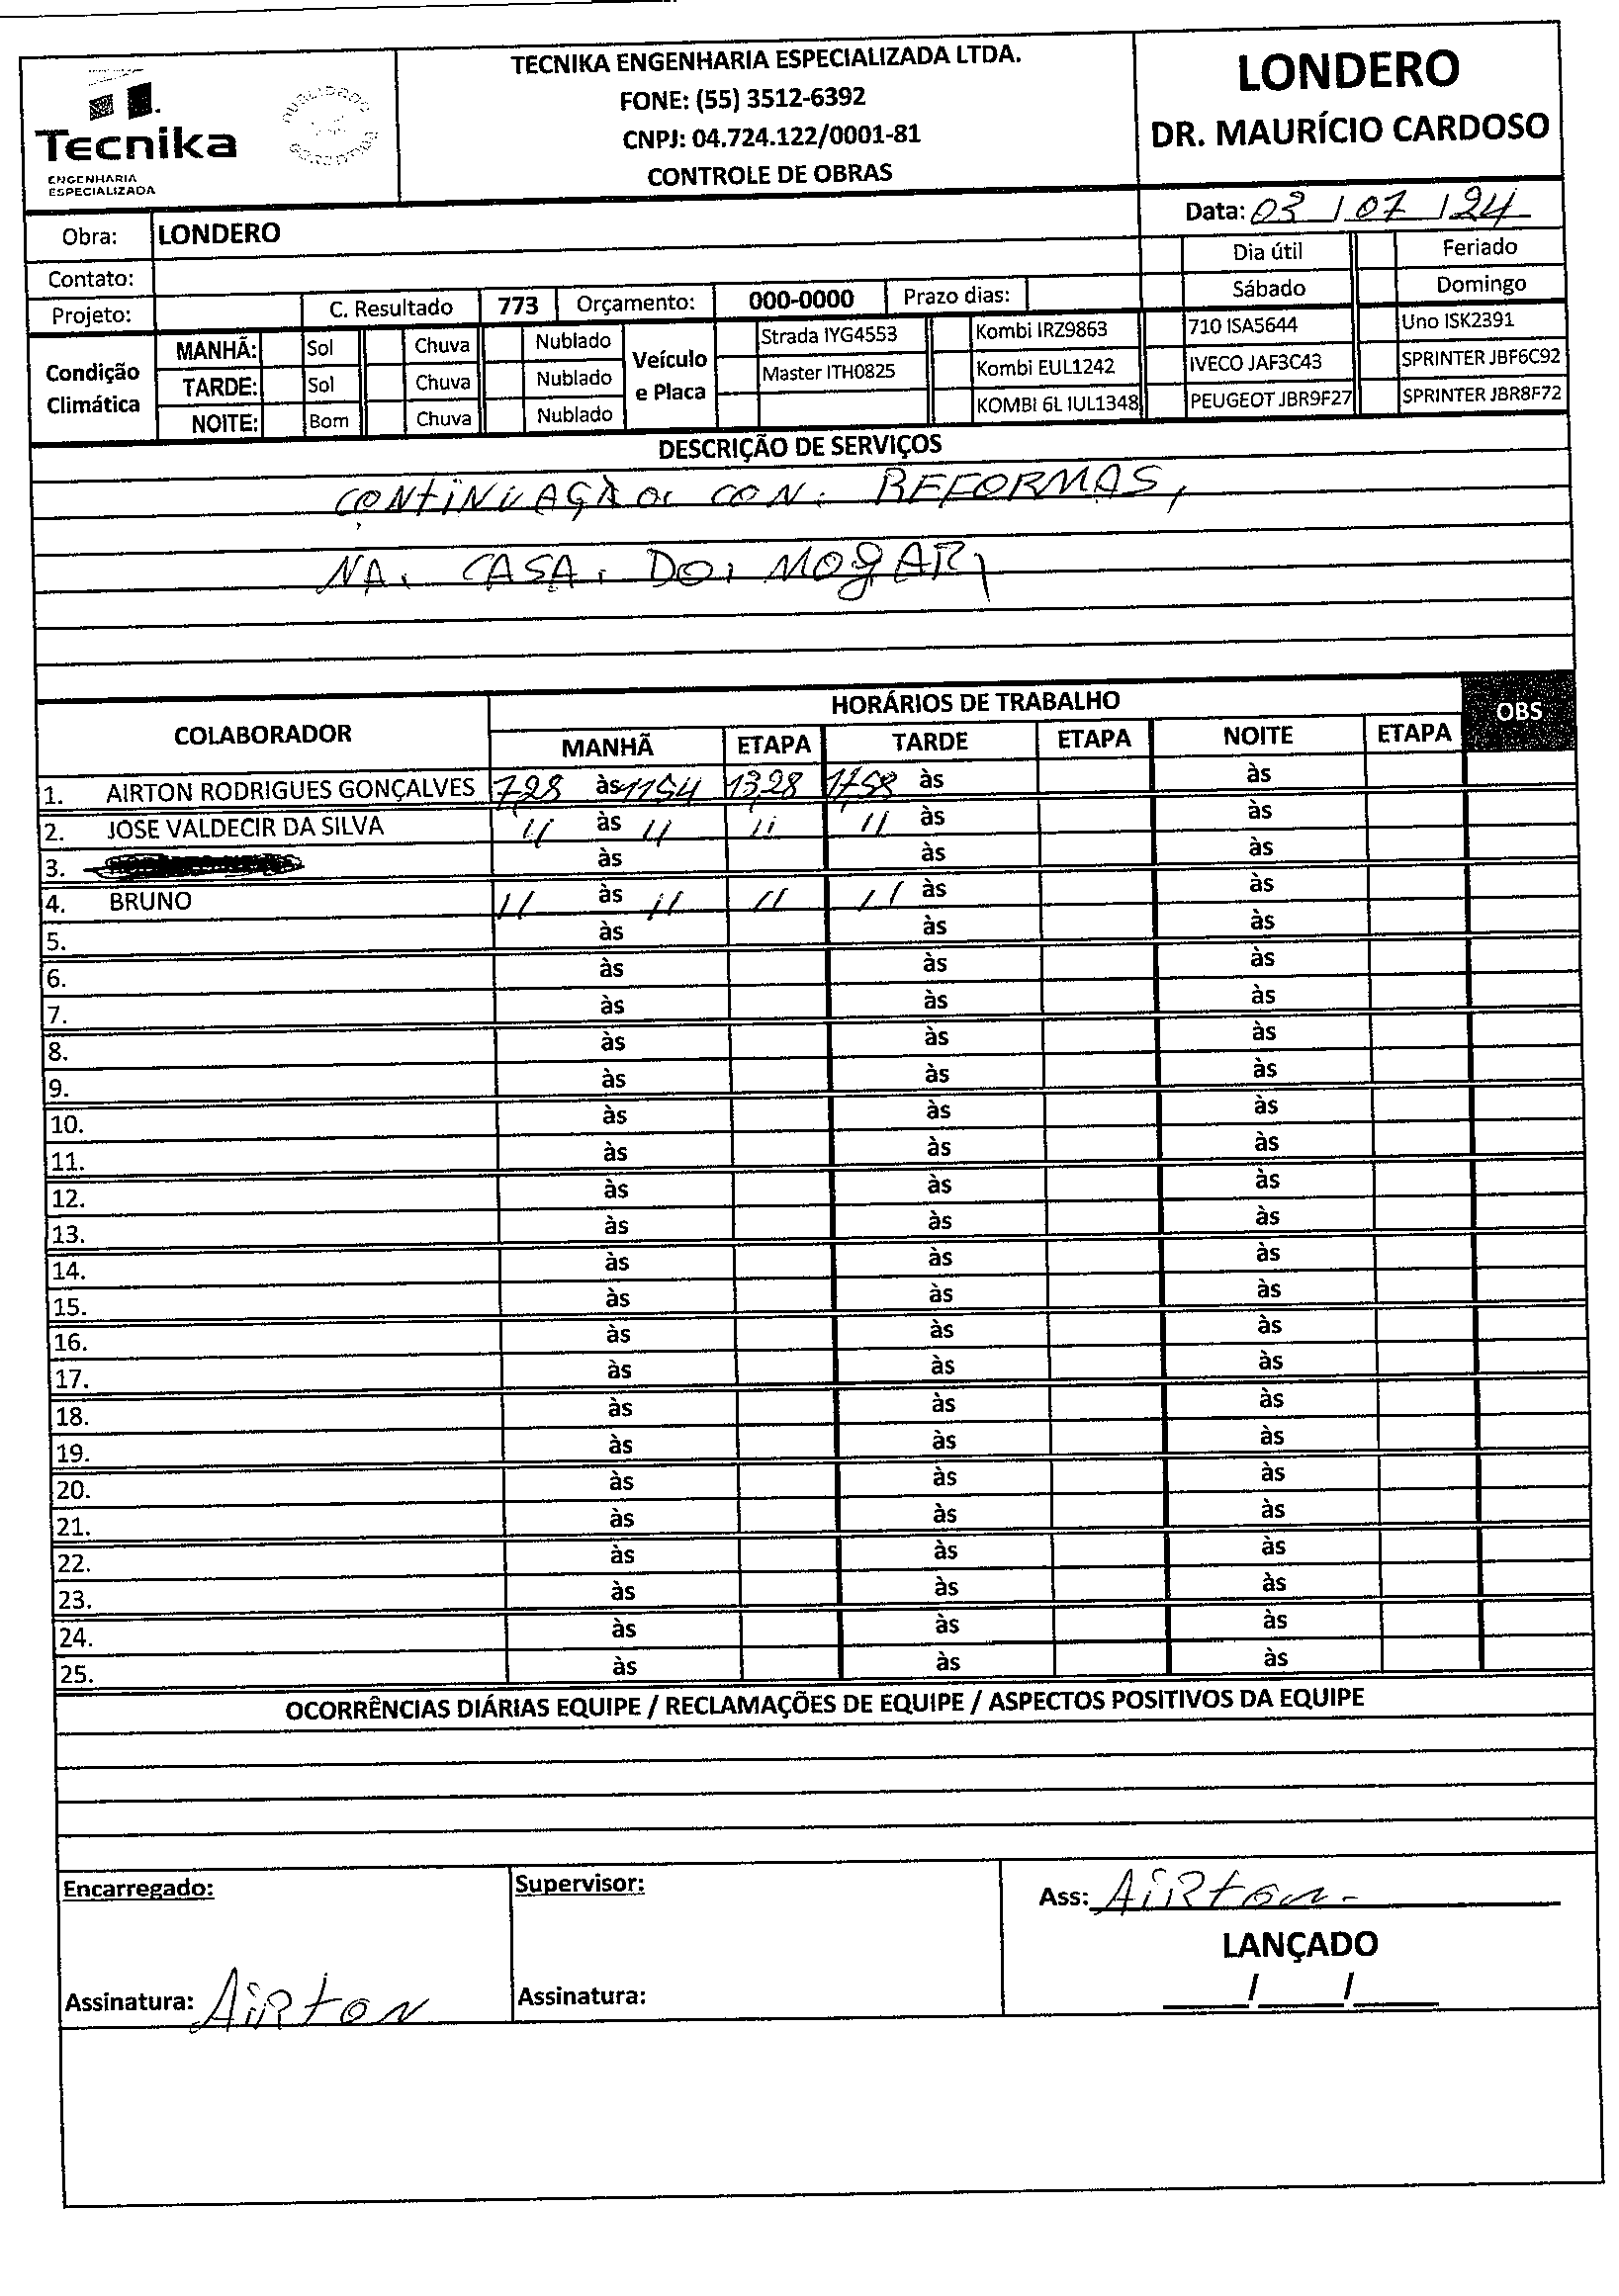 TECNIKA ENGENHARIA ESPECIALIZADA LTDA.
FONE: (55) 3512-6392
CNPJ: 04.724.122/0001-81
CONTROLE DE OBRAS
Tecnika
ENGENHARIA
ESPECIALIZADA
LONDERO
DR. MAURÍCIO CARDOSO
Data: 03 / 07 / 24
Obra: LONDERO
Dia útil Feriado
Contato:
Sábado Domingo
Projeto: C. Resultado 773 Orçamento: 000-0000 Prazo dias:
Condição Climática
MANHÃ: Sol Chuva Nublado
TARDE: Sol Chuva Nublado
NOITE: Bom Chuva Nublado
Veículo e Placa
Strada IYG4553 Kombi IRZ9863 710 ISA5644 Uno ISK2391
Master ITH0825 Kombi EUL1242 IVECO JAF3C43 SPRINTER JBF6C92
KOMBI 6L IUL1348 PEUGEOT JBR9F27 SPRINTER JBR8F72
DESCRIÇÃO DE SERVIÇOS
CONTINUAÇÃO. CON. REFORMAS,
NA. CASA. DO. MOGAR,
COLABORADOR HORÁRIOS DE TRABALHO OBS
MANHÃ ETAPA TARDE ETAPA NOITE ETAPA
1. AIRTON RODRIGUES GONÇALVES 7,28 às 1154 13,28 17,58 às às
2. JOSE VALDECIR DA SILVA 11 às 11 11 11 às às
3. às às às
4. BRUNO 11 às 11 11 11 às às
5. às às às
6. às às às
7. às às às
8. às às às
9. às às às
10. às às às
11. às às às
12. às às às
13. às às às
14. às às às
15. às às às
16. às às às
17. às às às
18. às às às
19. às às às
20. às às às
21. às às às
22. às às às
23. às às às
24. às às às
25. às às às
OCORRÊNCIAS DIÁRIAS EQUIPE / RECLAMAÇÕES DE EQUIPE / ASPECTOS POSITIVOS DA EQUIPE
Encarregado:
Supervisor:
Ass: AiRton-
LANÇADO
Assinatura: AiRton
Assinatura:
/ /